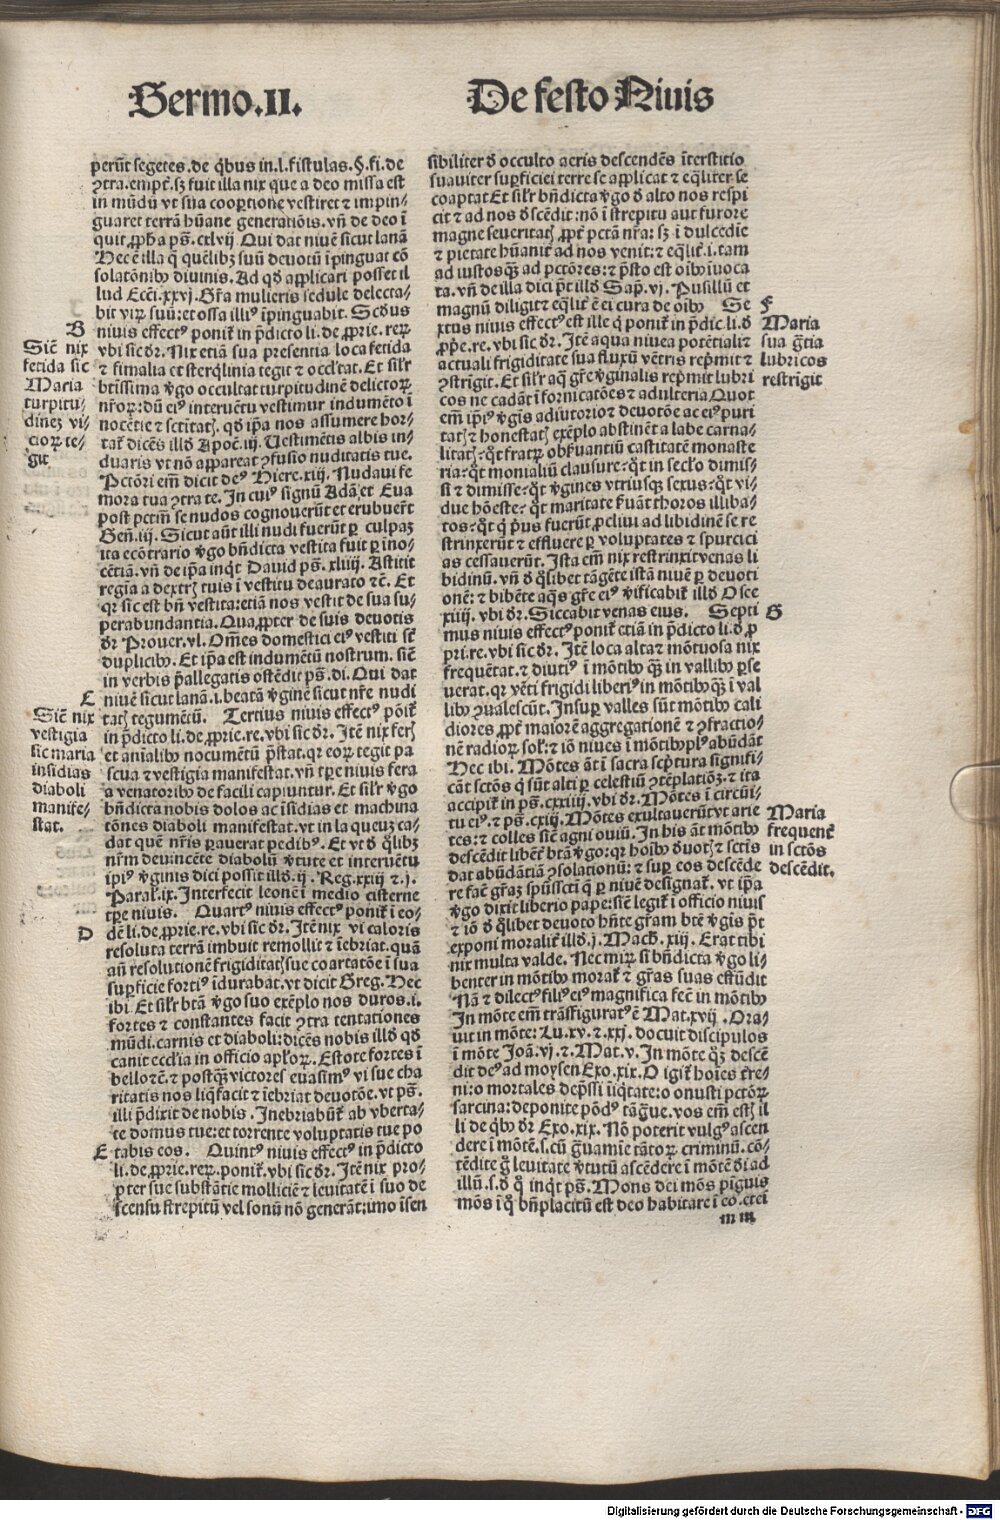 Sermo.II.
De festo Niuis
perūt segetes.de q̇bus in.l.fistulas.§.fi.de
ꝯtra.empt̄.sz fuit illa nix que a deo missa est
in mūdū vt sua cooptione vestiret ⁊ impin-
guaret terrā hūane generatiōis.vñ de deo ī
quit ꝓpha ps̄.cxlvij Qui dat niuē sicut lanā
Hec ē illa q̄ quēlibꝫ suū deuotū īpinguat cō
solatōnibꝰ diuinis. Ad qd̄ applicari posset il
lud Ecci.xxvj. Gr̄a mulieris sedule delecta-
bit virꝝ suū:et ossa illiꝰ īpinguabit. Scd̄us
niuis effectꝰ ponit̄ in p̄dicto li.de ꝓprie.reꝝ
vbi sic dr̄. Nix etiā sua presentia loca fetida
⁊ fimalia et sterq̇linia tegit ⁊ occl̄tat. Et silr̄
btīssima v̄go occultat turpitudinē delictoꝝ
nr̄oꝝ:dū eiꝰ interuētu vestimur indumēto ī
nocētie ⁊ sctitatꝭ. qd̄ ip̄a nos assumere hor-
tat̄ dicēs illd̄ Apoc̄.iij. Vestimētis albis in-
duaris vt nō appareat ꝯfusio nuditatis tue.
Pctōri em̄ dicit deꝰ Hiere.xiij. Nudaui fe
mora tua ꝯtra te. In cuiꝰ signū Adā et Eua
post pctm̄ se nudos cognouerūt et erubuer̄t
Gen̄.iij. Sicut aūt illi nudi fuerūt ꝑ culpaꝫ
ita ecōtrario v̄go bn̄dicta vestita fuit ꝑ ino-
cētiā. vñ de ip̄a inqt̄ Dauid ps̄.xliiij. Astitit
regīa a dextrꝭ tuis ī vestitu deaurato ⁊c̄. Et
qꝛ sic est bn̄ vestita:etiā nos vestit de sua su-
perabundantia. Qua ꝓpter de suis deuotis
dr̄ Prouer.vl. Om̄es domestici eiꝰ vestiti sc̄
duplicibꝰ. Et ip̄a est indumētū nostrum. sic̄
in verbis p̄allegatis ostēdit ps̄.di. Qui dat
niuē sicut lanā.i.beatā v̄ginē sicut nr̄e nudi
tatꝭ tegumētū. Tertius niuis effectꝰ pōit̄
in p̄dicto li.de ꝓprie.re.vbi sic dr̄. Itē nix ferꝭ
et aīalibꝰ nocumētū p̄stat.qꝛ eoꝝ tegit pa
scua ⁊ vestigia manifestat.vñ tꝑe niuis fera
a venatoribꝰ de facili capiuntur. Et silr̄ v̄go
bn̄dicta nobis dolos ac īsidias et machina
tōnes diaboli manifestat.vt in laqueuꝫ ca-
dat quē nr̄is ꝑauerat pedibꝰ. Et vt d̄ q̄libꝫ
nr̄m deuincēte diabolū v̄tute et interuētu
ip̄iꝰ v̄ginis dici possit illd̄.ij. Reg.xxiij ⁊.j.
Paral̄.ix. Interfecit leonē ī medio cisterne
tꝑe niuis. Quartꝰ niuis effectꝰ ponit̄ ī eo-
dē li.de ꝓprie.re.vbi sic dr̄. Itē nix vi caloris
resoluta terrā imbuit remollit ⁊ īebriat.quā
añ resolutionē frigiditatꝭ sue coartatōe ī sua
suꝑficie fortiꝰ īdurabat.vt dicit Greg. Hec
ibi. Et silr̄ btā v̄go suo exēplo nos duros.i.
fortes ⁊ constantes facit ꝯtra tentationes
mūdi.carnis et diaboli:dicēs nobis illd̄ qd̄
canit eccl̄ia in officio apl̄oꝝ. Estote fortes ī
bello⁊c̄. ⁊ postqꝫ victores euasimꝰ vi sue cha
ritatis nos liq̄facit ⁊ īebriat deuotōe.vt ps̄.
illi p̄dixit de nobis. Inebriabūt̄ ab vberta-
te domus tue:et torrente voluptatis tue po
tabis eos. Quintꝰ niuis effectꝰ in p̄dicto
li.de ꝓprie.reꝝ.ponit̄.vbi sic dr̄. Itē nix pro-
pter sue substātie molliciē ⁊ leuitatē ī suo de
scensu strepitū vel sonū nō generāt:imo īsen
B
Sic̄ nix
fetida sic
Maria
turpitu-
dineꝫ vi-
cioꝝ te-
git
C
Sic̄ nix
vestigia
sic maria
insidias
diaboli
manife-
stat.
D
E
sibiliter d̄ occulto aeris descendēs īterstitio
suauiter suꝑficiei terre se applicat ⁊ eq̄liter se
coaptat Et silr̄ bn̄dicta v̄go d̄ alto nos respi
cit ⁊ ad nos d̄scēdit:nō ī strepitu aut furore
magne seueritatꝭ ꝓpt̄ pctā nr̄a: sꝫ ī dulcedie
⁊ pietate hūanit̄ ad nos venit:⁊ eq̄lit̄.i.tam
ad iustos qꝫ ad pctōres:⁊ p̄sto est oībꝰ īuoca
ta. vñ de illa dici p̄t illd̄ Sap̄.vj. Pusillū et
magnū diligit⁊ eq̄lit̄ ē ei cura de oībꝰ Se
xtus niuis effectꝰ est ille q̄ ponit̄ in p̄dic.li.d̄
ꝓpe.re.vbi sic dr̄. Itē aqua niuea potētialit̄
actuali frigiditate sua fluxū vētris rep̄mit ⁊
ꝯstrīgit. Et silr̄ aq̄ gr̄e v̄ginalis rep̄mit lubri
cos ne cadāt ī fornicatōes ⁊ adulteria Quot
em̄ ip̄iꝰ v̄gīs adiutorio ⁊ deuotōe ac eiꝰ puri
tatꝭ ⁊ honestatꝭ exēplo abstinēt a labe carna-
litatꝭ:qt̄ fratꝝ obẜuantiū castitatē monaste
ria:qt̄ monialiū clausure:qt̄ in secl̄o dimis-
si ⁊ dimisse:qt̄ v̄gines vtriusqꝫ sexus:qt̄ vi-
due hōeste:qt̄ maritate ẜuāt thoros illiba-
tos:qt̄ q̄ p̄us fuerūt ꝓcliui ad libidinē se re
strinxerūt ⁊ effluere ꝑ voluptates ⁊ spurcici
as cessauerūt. Ista em̄ nix restrinxit venas li
bidinū. vñ d̄ q̄libet tāgēte istā niuē ꝑ deuoti
onē:⁊ bibēte aq̄s gr̄e eiꝰ v̄ificabit̄ illd̄ Osee
xiiij. vbi dr̄. Siccabit venas eius. Septi
mus niuis effectꝰ ponit̄ etiā in p̄dicto li.d̄ ꝓ
pri.re.vbi sic dr̄. Itē loca alta⁊ mōtuosa nix
frequētat.⁊ diutiꝰ ī mōtibꝰ qꝫ in vallibꝰ ꝑse
uerat.qꝛ vēti frigidi liberiꝰ in mōtibꝰqꝫ ī val
libꝰ ꝯualescūt. Insuꝑ valles sūt mōtibꝰ cali
diores ꝓpt̄ maiorē aggregationē ⁊ ꝯfractio-
nē radioꝝ sol̄:⁊ iō niues ī mōtibꝰ plꝰ abūdāt
Hec ibi. Mōtes āt ī sacra scp̄tura signifi-
cāt sctōs q̄ sūt alti ꝑ celestiū ꝯtēplatiōꝫ.⁊ ita
accipit̄ in ps̄.cxxiiij.vbi dr̄. Mōtes ī circūi-
tu eiꝰ.⁊ ps̄.cxiij. Mōtes exultauerūt vt arie
tes:⁊ colles sic̄ agni ouiū. In his āt mōtibꝰ
descēdit libēt̄ btā v̄go:qꝛ hoībꝰ d̄uotꝭ ⁊ sctīs
dat abūdātiā ꝯsolationū:⁊ suꝑ eos descēde
re faē gr̄aꝫ spūssctī q̄ ꝑ niuē designat̄. vt ip̄a
v̄go dixit liberio pape:sic̄ legit̄ ī officio niuis
⁊ iō d̄ q̄libet deuoto hn̄te gr̄am btē v̄gīs p̄t
exponi moralit̄ illd̄.j. Mach̄. xiij. Erat tibi
nix multa valde. Nec miꝝ si bn̄dicta v̄go li-
benter in mōtibꝰ morat̄ ⁊ gr̄as suas effūdit
Nā ⁊ dilectꝰ filiꝰ eiꝰ magnifica fecit in mōtibꝰ
In mōte em̄ trāsfiguratꝰ ē Mat.xvij. Ora-
uit in mōte: Lu.xv.⁊.xxj. docuit discipulos
ī mōte Joā.vj.⁊. Mat.v. In mōte qꝫ descē
dit deꝰ ad moysen Exo.xix. O igit̄ hoīes t̄re-
ni:o mortales dep̄ssi īiqtate:o onusti pctōꝝ
sarcina:deponite pōdꝰ tāgue.vos em̄ estꝭ il
li de q̇bꝰ dr̄ Exo.xix. Nō poterit vulgꝰ ascen
dere ī mōtē.s.cū grauamīe tātoꝝ criminū. cō-
tēdite g̊ leuitate v̄tutū ascēdere ī mōtē d̄i ad
illū.s.d̄ q̊ inqt̄ ps̄. Mons dei mōs pīguis
mōs ī q̊ bn̄placitū est deo habitare ī eo.etei
F
Maria
sua gr̄tia
lubricos
restrīgit
G
Maria
frequent̄
in sctōs
descēdit.
m m
Digitalisierung gefördert durch die Deutsche Forschungsgemeinschaft - DFG